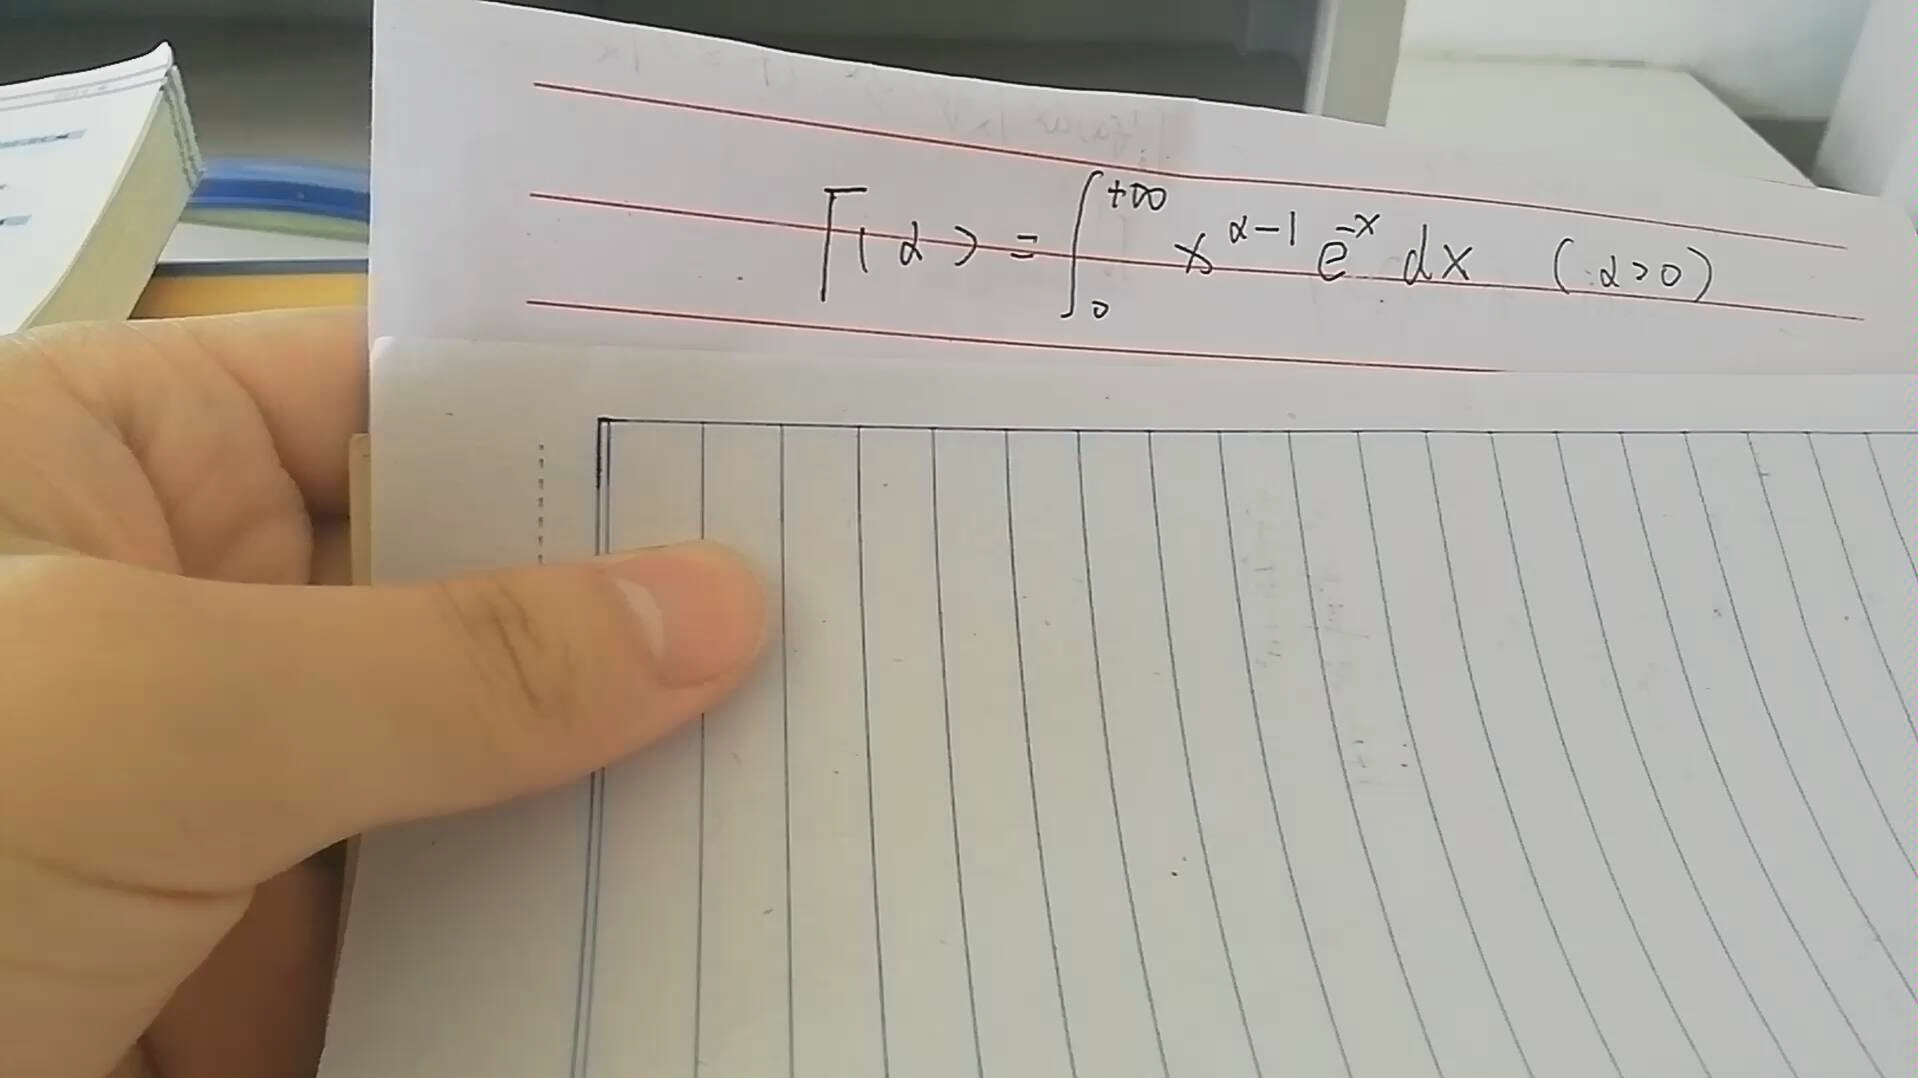 Γ(α) = ∫₀^{+∞} x^{α-1} e^{-x} dx (α>0)